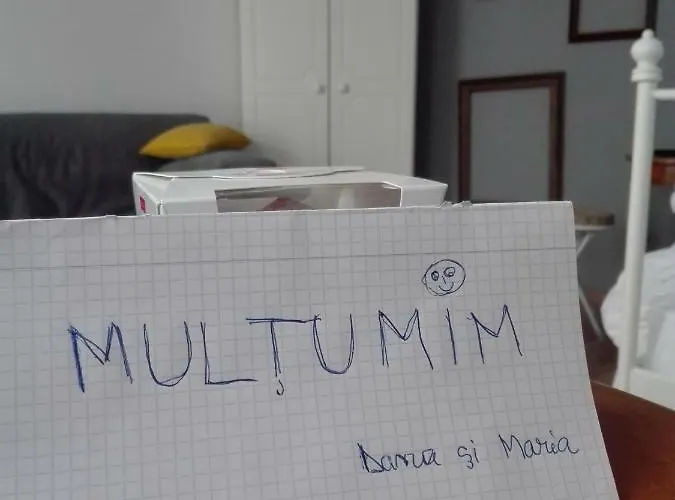 MULȚUMIM
Daria și Maria